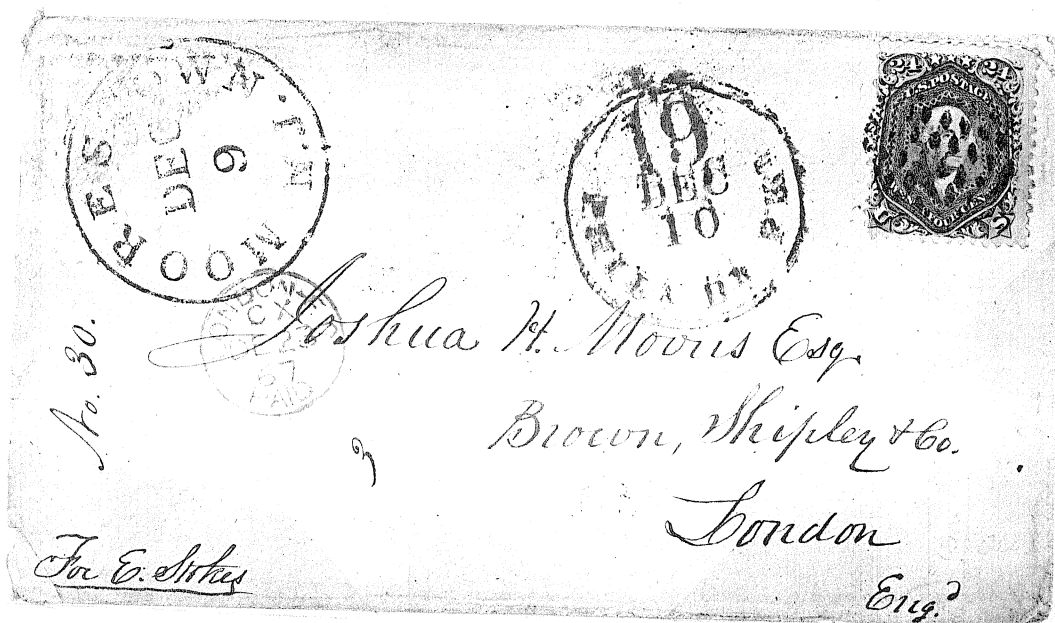 MOORESTOWN. N.J.
DEC
9
19
DEC
10
PHILA. BR. PKT
24 24
U.S. POSTAGE
LONDON
PAID
No. 30.
Joshua H. Morris Esq.
Brown, Shipley & Co.
London
Eng.d
3
For E. Stokes